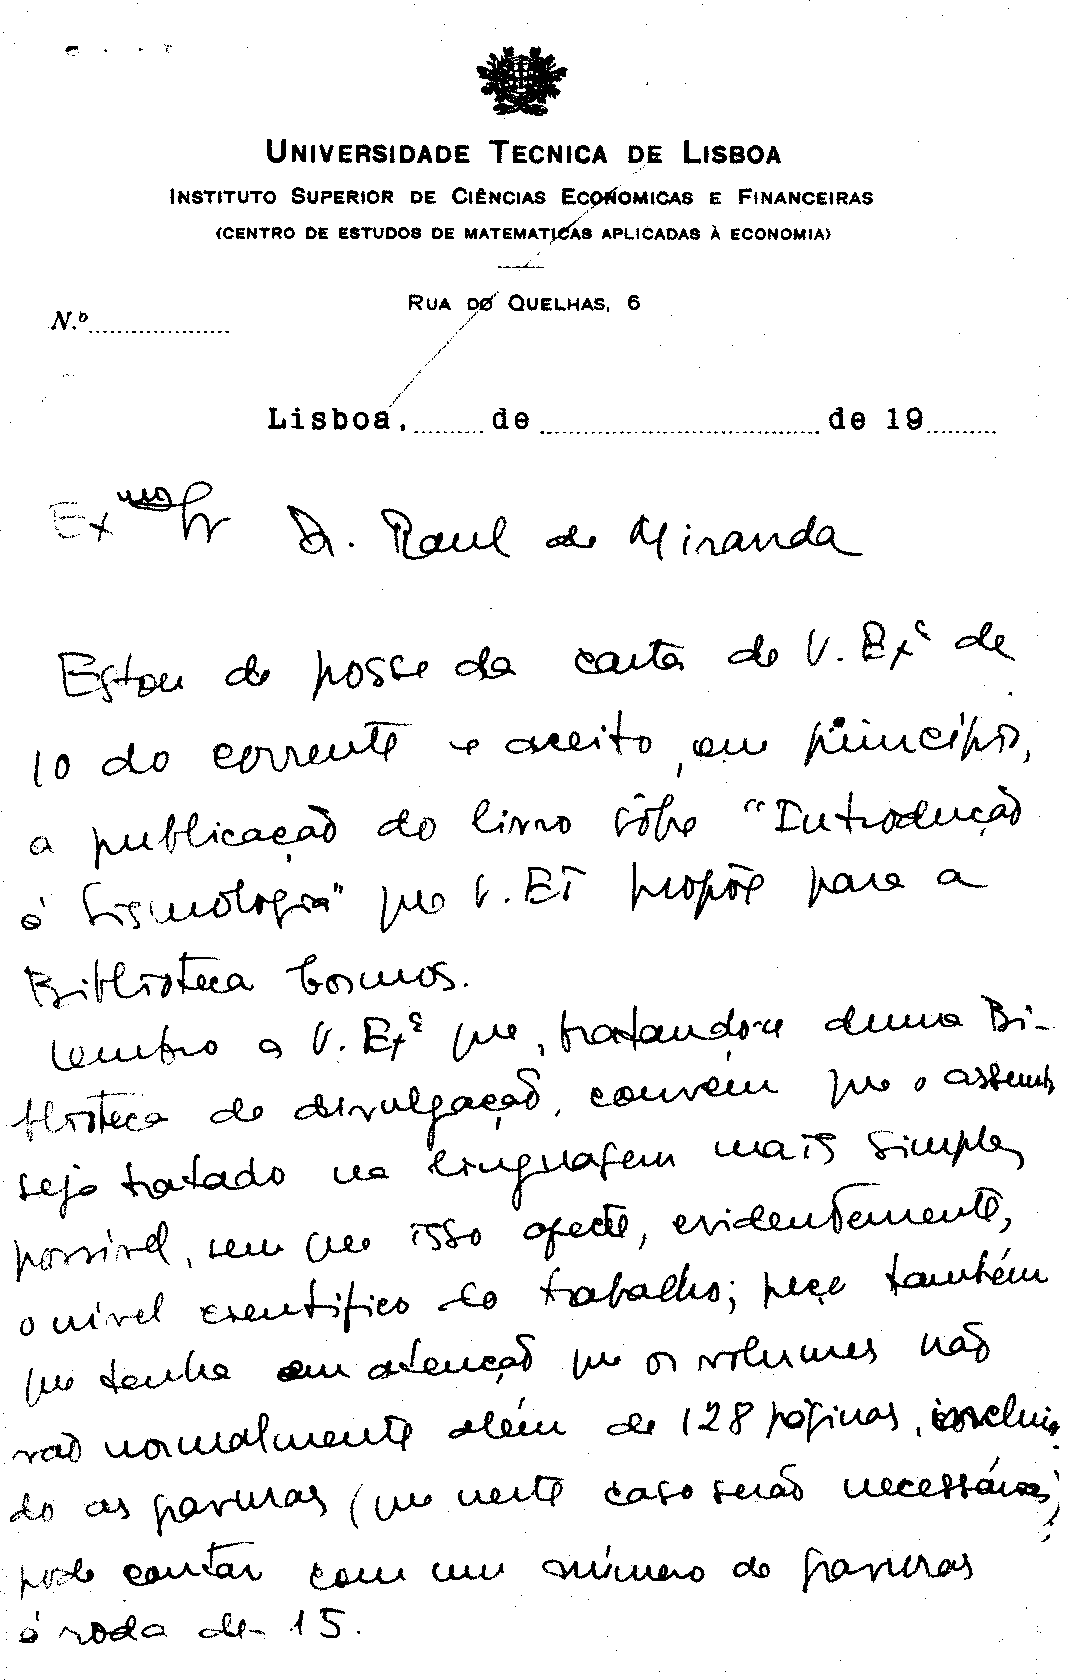 UNIVERSIDADE TECNICA DE LISBOA
INSTITUTO SUPERIOR DE CIÊNCIAS ECONOMICAS E FINANCEIRAS
(CENTRO DE ESTUDOS DE MATEMATICAS APLICADAS À ECONOMIA)
RUA DO QUELHAS, 6
N.º
Lisboa, de de 19
Exmo Sr Dr. Raul de Miranda
Estou de posse da carta de V. Exª de
10 do corrente e aceito, em princípio,
a publicação do livro sôbre "Introdução
à Sismologia" que V. Exª propõe para a
Biblioteca Cosmos.
Lembro a V. Exª que, tratando-se duma Bi-
blioteca de divulgação, convém que o assunto
seja tratado na linguagem mais simples
possível, sem que isso afecte, evidentemente,
o nível científico do trabalho; peço também
que tenha em atenção que os volumes não
vão normalmente além de 128 páginas, incluin-
do as gravuras (que neste caso serão necessárias);
pode contar com um número de gravuras
à roda de 15.